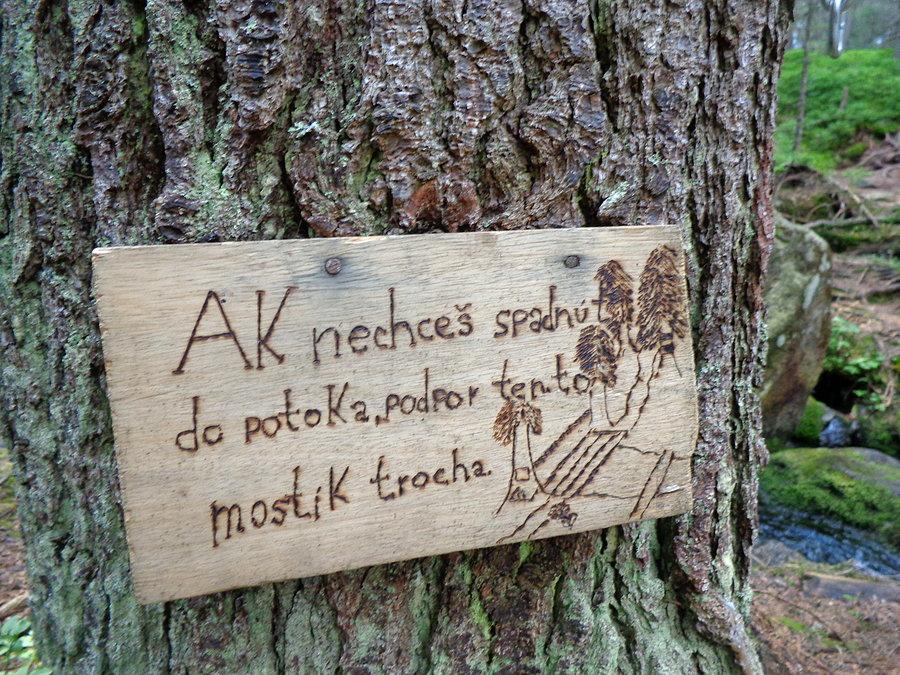 AK nechceš spadnúť
do potoka, podpor tento
mostík trocha.